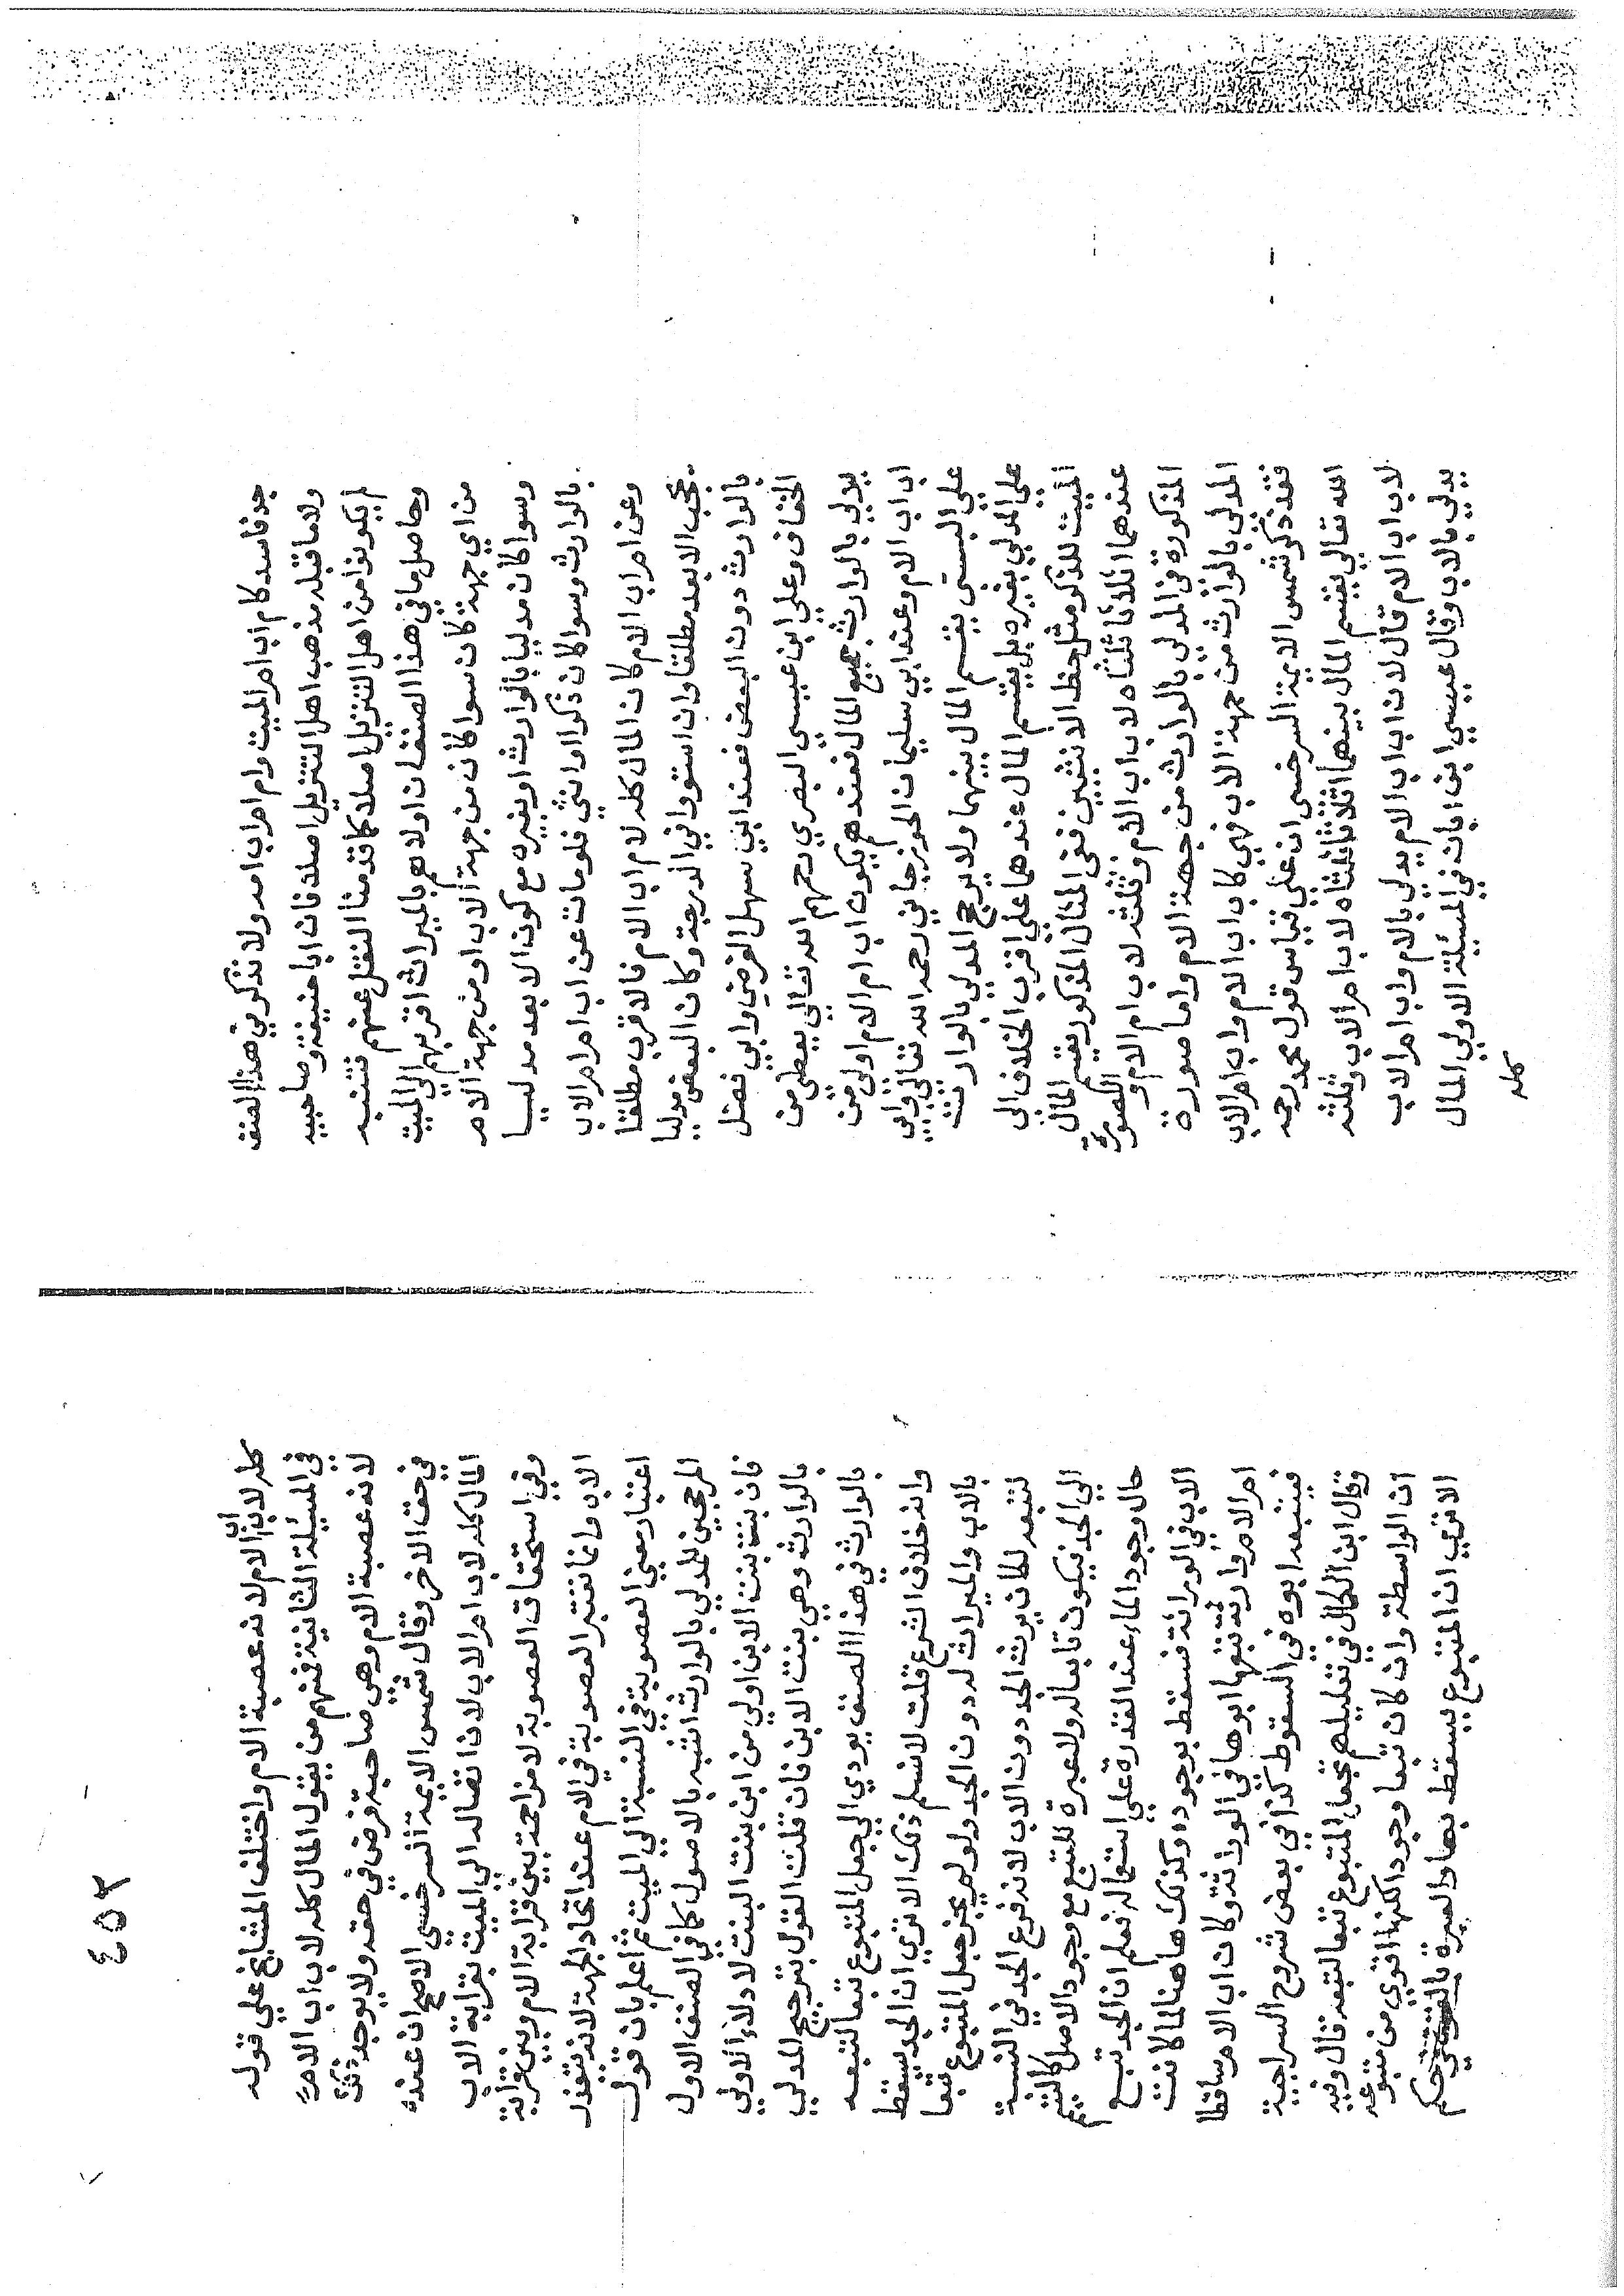 جد فاسد كام اب ام الميت وام ام اب امه ولا تذكر في هذا الصنف
ولا ما قبله مذهب اهل التنزيل اصلا فان ابا حنيفة وصاحبيه
لم يكونوا من اهل التنزيل اصلا كما قدمنا النقل عنهم فتنبه
وحاصل ما في هذا الصنف ان اولاهم بالميراث اقربهم الي الميت
من اي جهة كان سوا كان من جهة الاب او من جهة الام
وسوا كان مدليا بالوارث او بغيره مع كون الابعد مدليا
بالوارث وسوا كان ذكرا او انثي فلو مات عن اب ام ام الاب
وعن ام اب الام كان المال كله لام اب الام فالاقرب مطلقا
يحجب الابعد مطلقا وان استووا في الدرجة وكان البعض مدليا
بالوارث دون البعض فعند ابي سهل الفرضي وابي فضل
الخفاف وعلي ابن عيسي البصري رحمهم الله تعالي يعطي من
يدلي بالوارث جميع المال فعندهم يكون اب ام الام اولي من
اب اب الام وعند ابي سليمان الجوزجاني رحمه الله تعالي وابي
علي البستي يقسم المال بينهما ولا يرجح المدلي بالوارث
علي المدلي بغيره بل يقسم المال عندهما علي اقرب الخلاف الي
الميت للذكر مثل حظ الانثيين ففي المثال المذكور يقسم المال
عندهما اثلاثا ثلثاه لاب اب الام وثلثه لاب ام الام والصورة
المذكورة في المدلي بالوارث من جهة الام واما صورة
المدلي بالوارث من جهة الاب فهي كاب اب الام واب ام الاب
فقد ذكر شمس الايمة السرخسي ان علي قياس قول محمد رحمه
الله تعالي يقسم المال بينهما اثلاثا ثلثاه لاب ام الاب وثلثه
لاب اب الام قال لان اب اب الام يدلي بالام واب ام الاب
يدلي بالاب وقال عيسي ابن ابان في المسيلة الاولي المال
كله
٤٥٢
كله لاب اب الام لانه عصبة الام واختلف المشايخ علي قوله
في المسيلة الثانية فمنهم من يقول المال كله لاب اب الام
لانه عصبة الام وهي صاحبة فرض في حقه ولا يوجد
في حق الاخر وقال شمس الايمة السرخسي الاصح ان عنده
المال كله لاب ام الاب لان اتصاله الي الميت بقرابة الاب
وفي استحقاق العصوبة لا مزاحمة بين قرابة الام وبين قرابة
الاب وانما تعتبر العصوبة في الام عند اتحاد الجهة لانه تعذر
اعتبار معني العصوبة في النسبة الي الميت ثم اعلم بان قول
المرجحين للمدلي بالوارث اشبه بالاصول كما في الصنف الاول
فان بنت بنت الابن اولي من ابن بنت البنت لادلاء الاولي
بالوارث وهي بنت الابن فان قلت القول بترجيح المدلي
بالوارث في هذا الصنف يودي الي جعل المتبوع تبعا لتبعه
وانه خلاف الشرع قلت لا نسلم ذلك الا تري ان الجد يسقط
بالاب والميراث له دون الجد ولو لم يجز جعل المتبوع تبعا
لتبعه لكان يرث الجد دون الاب لانه فرع الجد في النسبة
الي الجد فيكون تابعا له ولا عبرة للتبع مع وجود الاصل كالتيمم
حال وجود الماء عند القدرة علي استعماله فعلم ان الجد تبع
الاب في الوراثة فسقط بوجوده وكذلك ها هنا لما كانت
ام الام وارثة تبعها ابوها في الوراثة وكان اب الام ساقطا
فيتبعه ابوه في السقوط كذا في بعض شروح السراجية
وقال ابن الكمال في تعليلهم بجعل المتبوع تبعا لتبعه قال وفيه
ان الواسطة وان كان تبعا وجودا لكنها اقوي من متبوعه
الا تري ان المتبوع يسقط بها والعبرة حكم